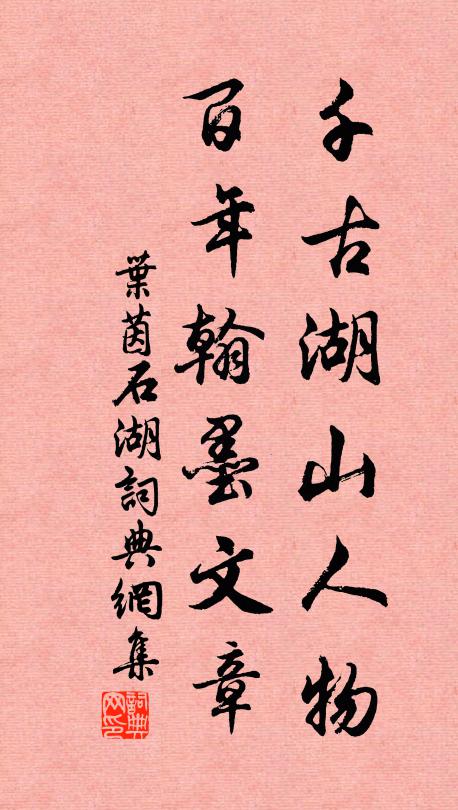 千古湖山人物
百年翰墨文章
葉茵石湖詞典網集
詞典网印